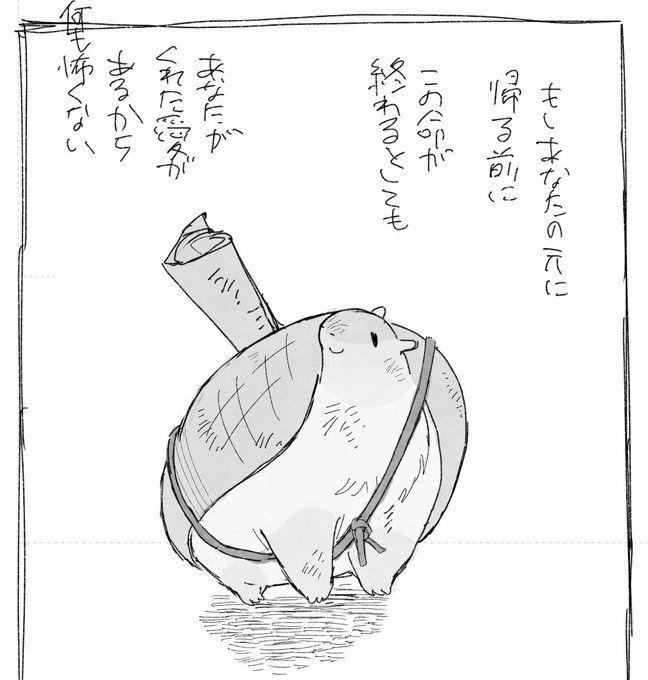 もしあなたの元に
帰る前に
この命が
終わるとしても
あなたが
くれた愛が
あるから
何も怖くない